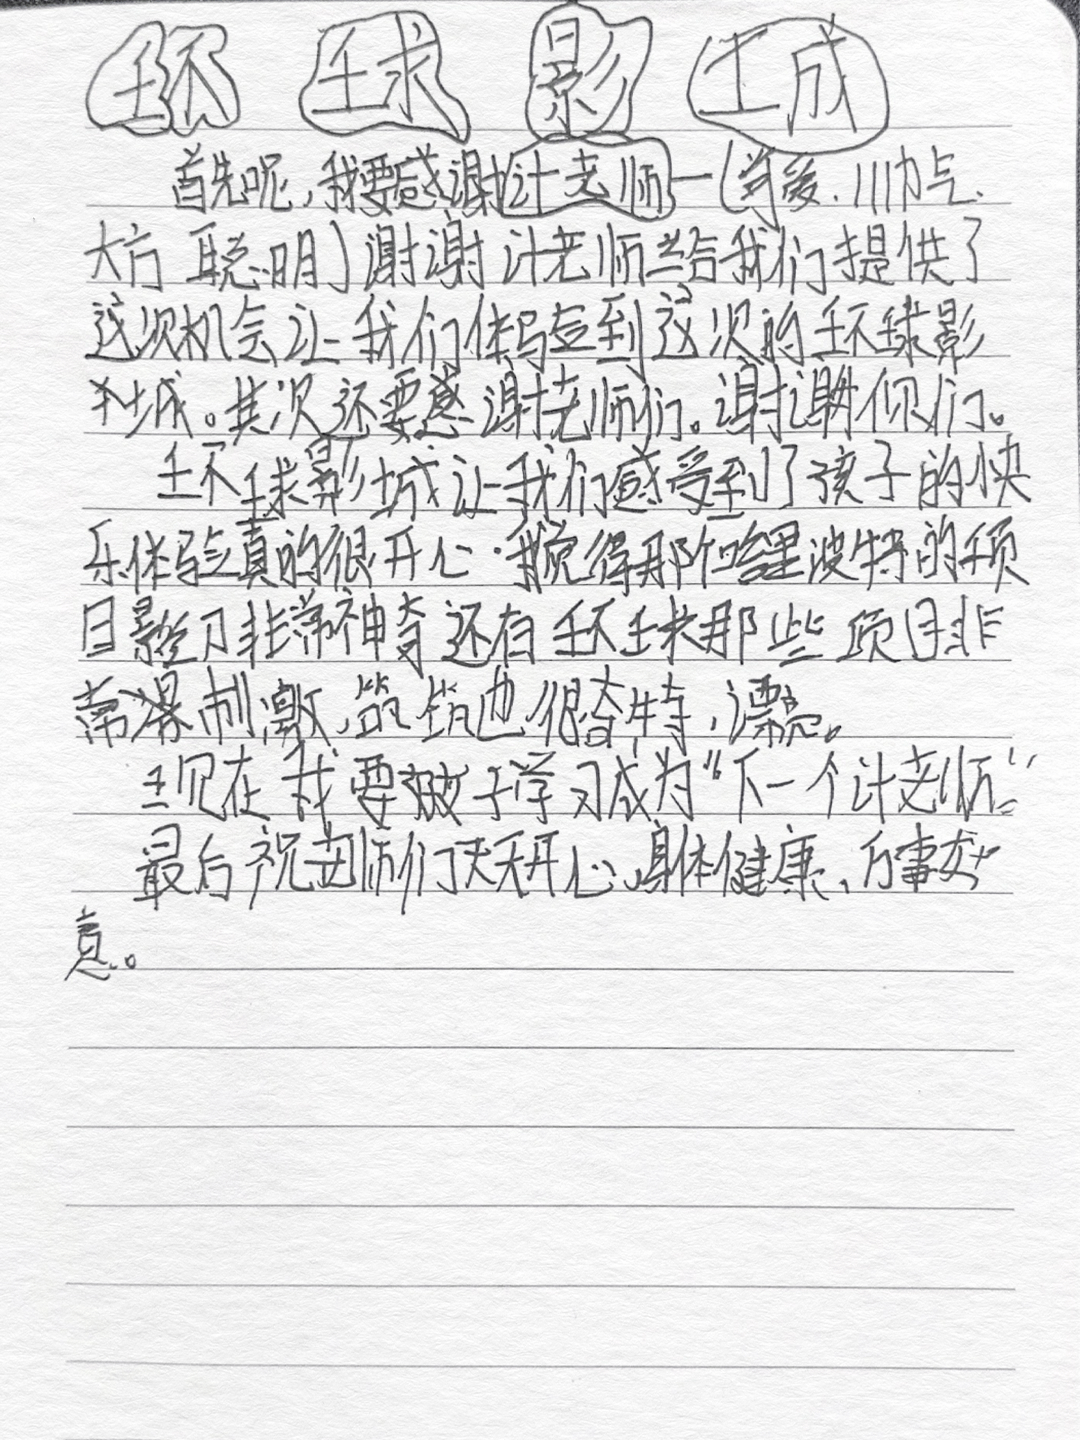 环球影城
首先呢,我要感谢计老师—(可爱.川力点.
大方 聪明)谢谢计老师给我们提供了
这次机会让我们体验到这次的环球影
城。其次还要感谢老师们。谢谢你们。
环球影城让我们感受到了孩子的快
乐体验真的很开心.我觉得那个哈里波特的项
目影刀非常神奇 还有环球那些项目非
常 刺激,筑也很奇特,漂亮。
现在我要 学习成为“下一个计老师”
最后祝老师们天天开心、身体健康、万事如
意。